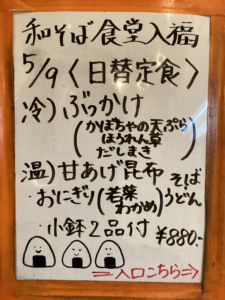 和そば食堂入福
5/9〈日替定食〉
冷)ぶっかけ
(かぼちゃの天ぷら
ほうれん草
だしまき)
温)甘あげ昆布そば
うどん
・おにぎり(若菜
わかめ)
・小鉢2品付
¥880-
⇒入口こちら⇒